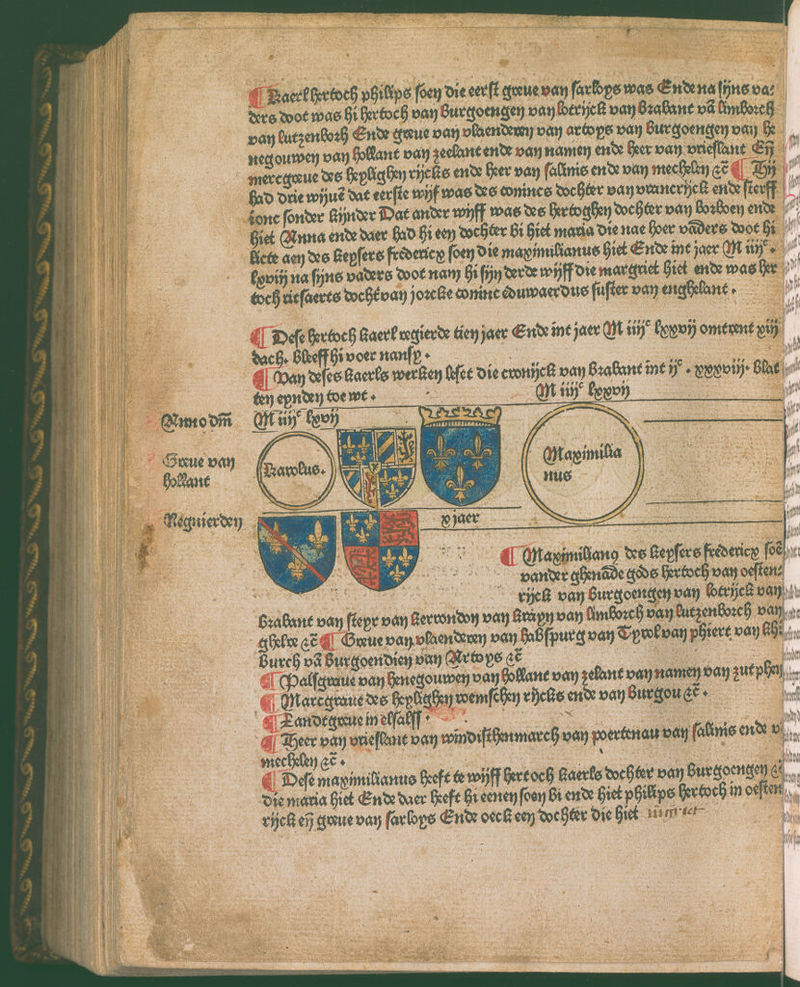 ¶ Kaerl hertoch philips soen die eerst greue van sarloys was Ende na sijns va⸗
ders doot was hi hertoch van Burgoengen van lotrijck van Brabant vā limborch
van lutzenborh Ende greue van vlaenderen van artoys van Burgoengen van he
negouwen van hollant van zeelant ende van namen ende heer van vrieslant Eñ
mercgreue des heylighen rijcks ende heer van salinis ende van mechelen ⁊c̄ ¶ Hij
had drie wijuē dat eerste wijf was des conincs dochter van vrancrijck ende sterff
ionc sonder kijnder Dat ander wijff was des hertoghen dochter van borboen ende
hiet Anna ende daer had hi een dochter bi hiet maria die nae hoer vaders doot hi
licte aen des keysers fredericx soen die maximilianus hiet Ende int jaer M iiijᶜ
lxviij na sijns vaders doot nam hi sijn derde wijff die margriet hiet ende was her
toch ritsaerts dochtˀ van jorcke coninc eduwaerdus suster van enghelant .
¶ Dese hertoch kaerl regierde tien jaer Ende int jaer M iiijᶜ lxxvij omtrent xiij
dach. Bleeff hi voer nansy .
¶ Van deses kaerls werken leset die cronijck van Brabant int ijᶜ . xxxviij. Blat
ten eynden toe wt .
M iiijᶜ lxxvij
Anno dm̄ M iiijᶜ lxvij
Greue van
hollant
Karolus.
Maximilia
nus
Regnierden x jaer
¶ Maximilianꝰ des keysers fredericx soē
vander ghenāde gods hertoch van oesten⸗
rijck van Burgoengen van lotrijck van
Brabant van steyr van kernnden van krayn van limborch van lutzenborch van
ghelre ⁊c̄ ¶ Greue van vlaenderen van habspurg van Tyrol van phiert van khi
Burch vā Burgoendien van Artoys ⁊c̄
¶ Palsgraue van henegouwen van hollant van zelant van namen van zutphen
¶ Marcgraue des heylighen roemschen rijcks ende van Burgou ⁊c̄ .
¶ Landtgreue in elsalss .
¶ Heer van vrieslant van windisthenmarch van poertenau van salinis ende v
mechelen ⁊c̄ .
¶ Dese maximilianus heeft te wijff hertoch kaerls dochter van Burgoengen
die maria hiet Ende daer heeft hi eenen soen bi ende hiet philips hertoch in oesten
rijck eñ greue van sarloys Ende oeck een dochter die hiet